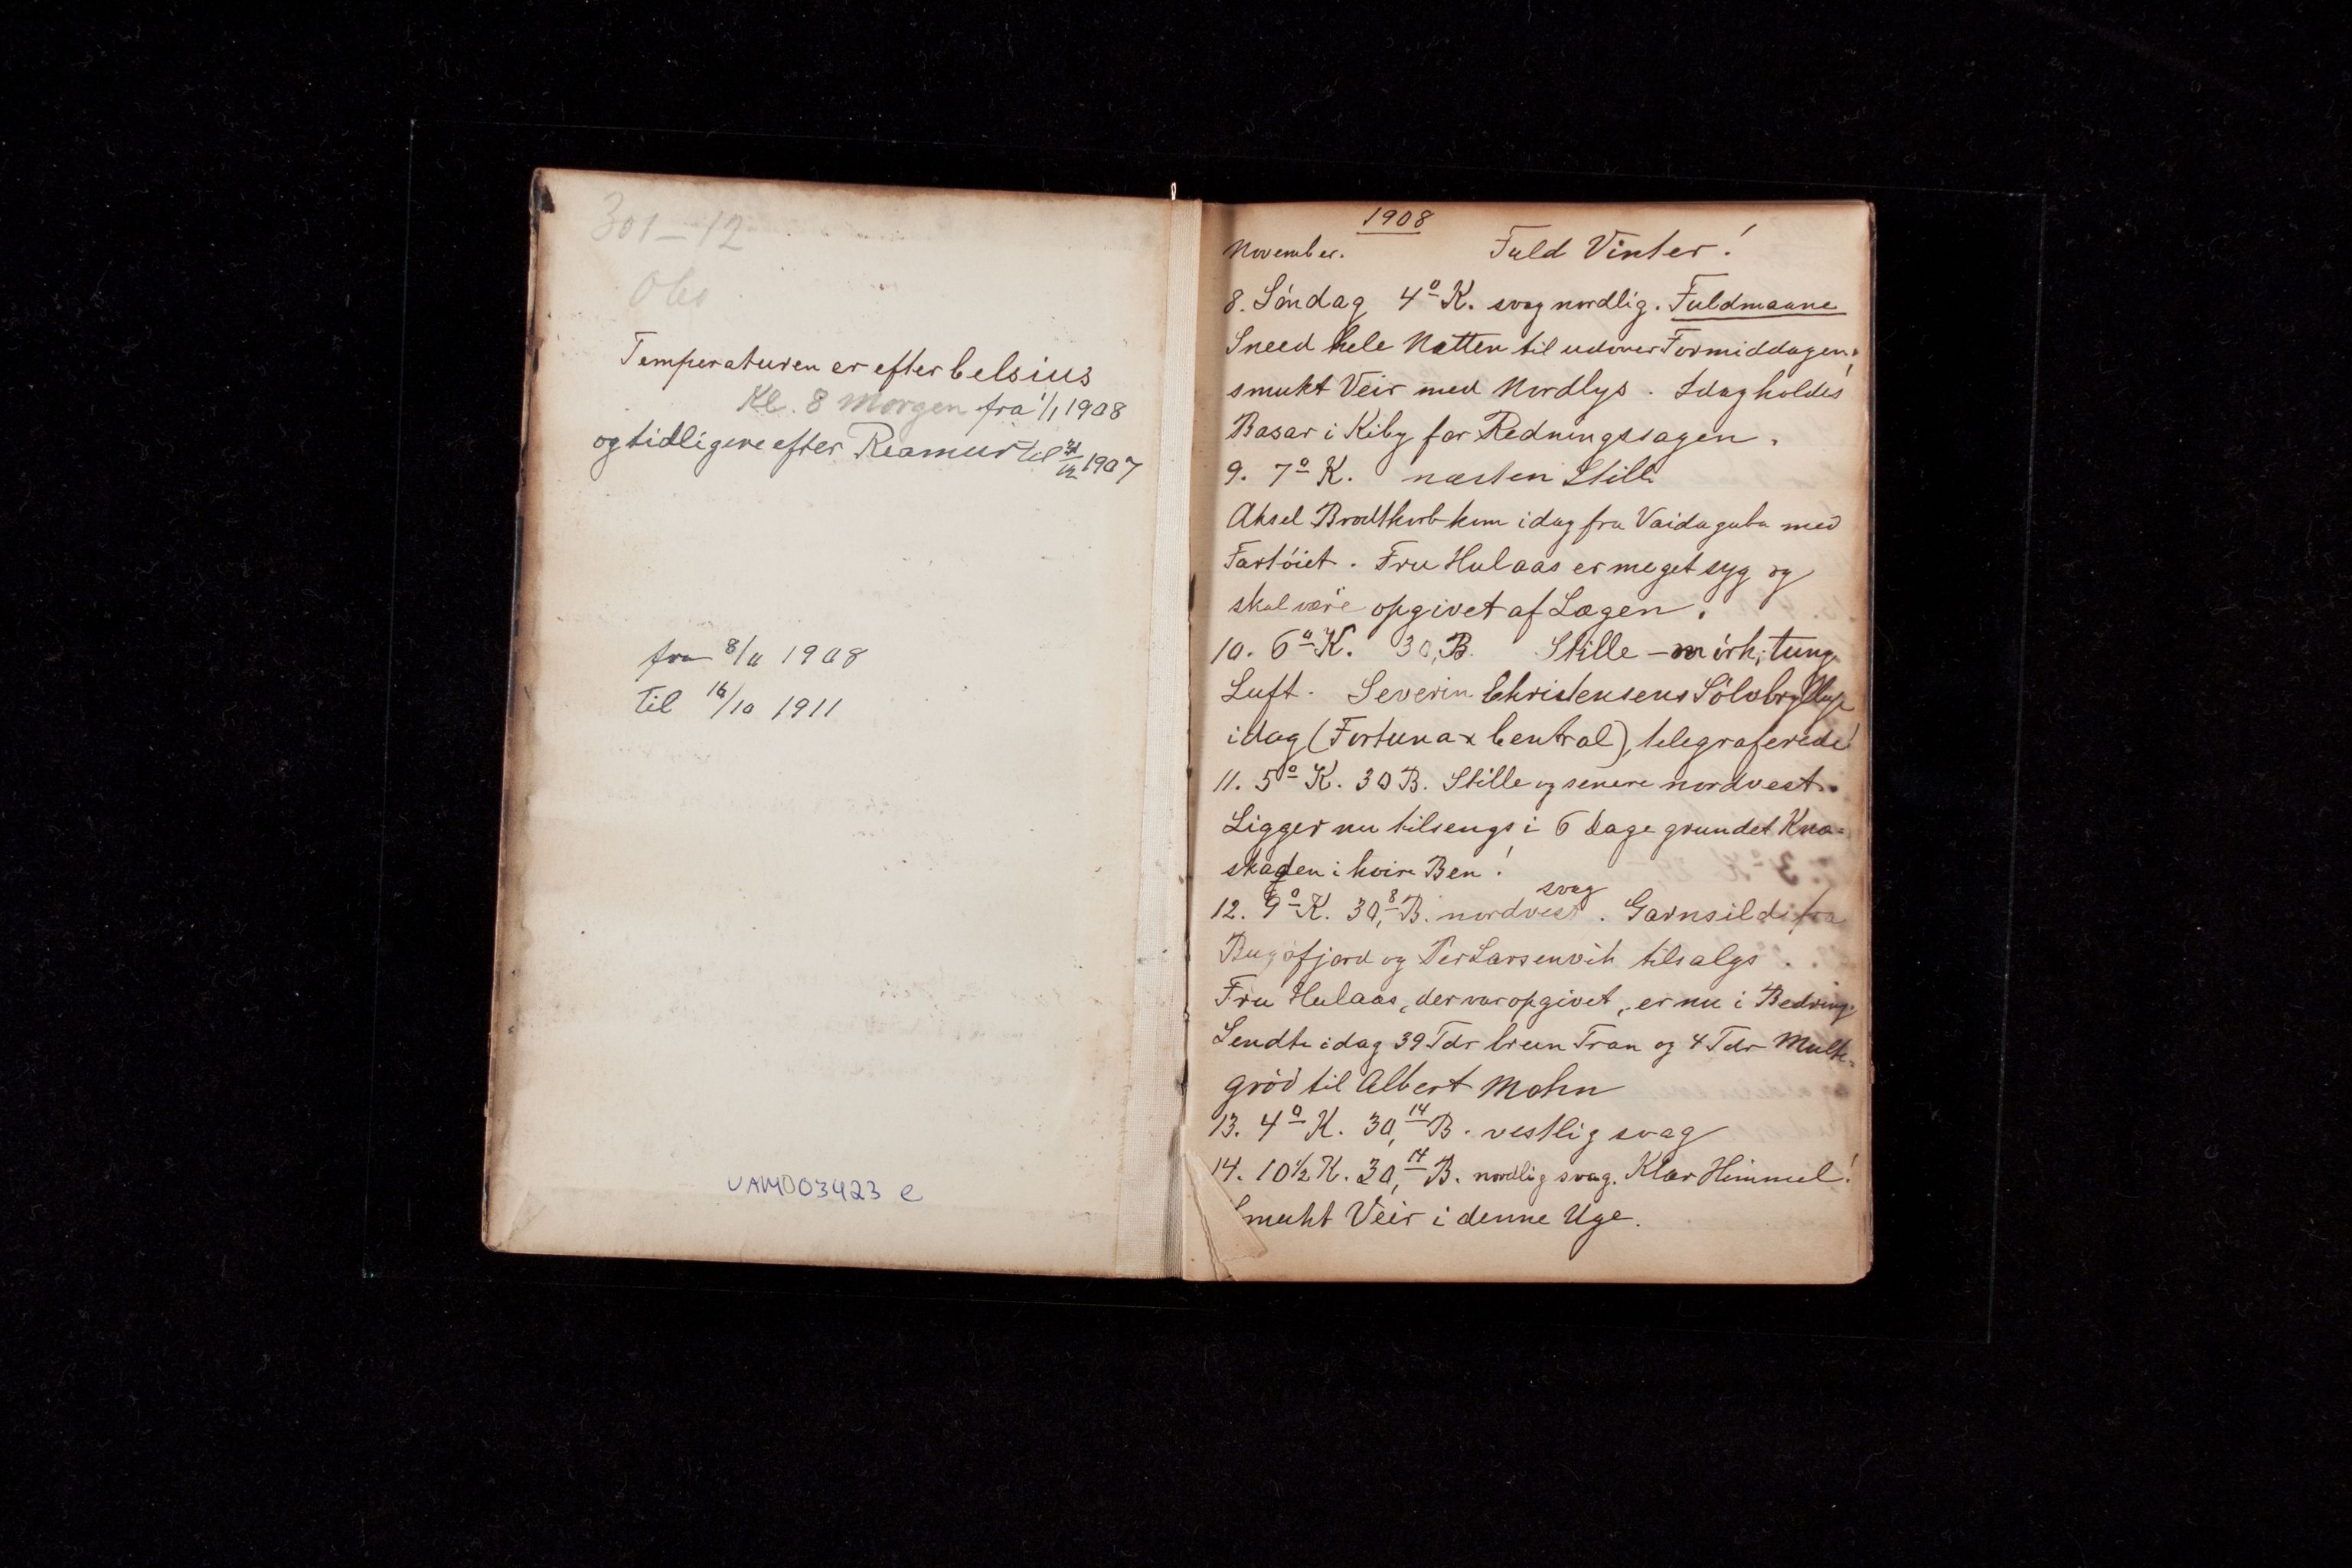 301-12
Obs
Temperaturen er efter Celsius
Kl. 8 morgen fra 1/1 1908
og tidligere efter Reamur til 31/12 1907
fra 8/11 1908
til 16/10 1911
VAM003423 e
1908
November. Fuld Vinter!
8. Söndag 4° K. svag nordlig. Fuldmaane
Sneed hele Natten til udover Formiddagen,
smukt Veir med Nordlys. Idag holdes
Basar i Kiby for Redningssagen.
9. 7° K. næsten Stille
Aksel Brodtkorb kom idag fra Vaidaguba med
Fartöiet. Fru Hulaas er meget syg og
skal være opgivet af Lægen.
10. 6° K. 30, B. Stille - mörk, tung
Luft. Severin Christensens Sölvbryllup
idag (Fortuna x Central), telegraferede!
11. 5° K. 30 B. Stille og senere nordvest.
Ligger nu tilsengs i 6 Dage grundet Knæ=
skaden i höire Ben!
12. 9° K. 30,8 B. nordvest svag. Garnsild fra
Bugöfjord og Per Larsenvik tilsalgs.
Fru Hulaas, der var opgivet, er nu i Bedring.
Sendte idag 39 Tdr brun Tran og 4 Tdr Multe=
gröd til Albert Mohn
13. 4° K. 30,14 B. vestlig svag
14. 10½ K. 30,14 B. nordlig svag. Klar Himmel!
Smukt Veir i denne Uge.